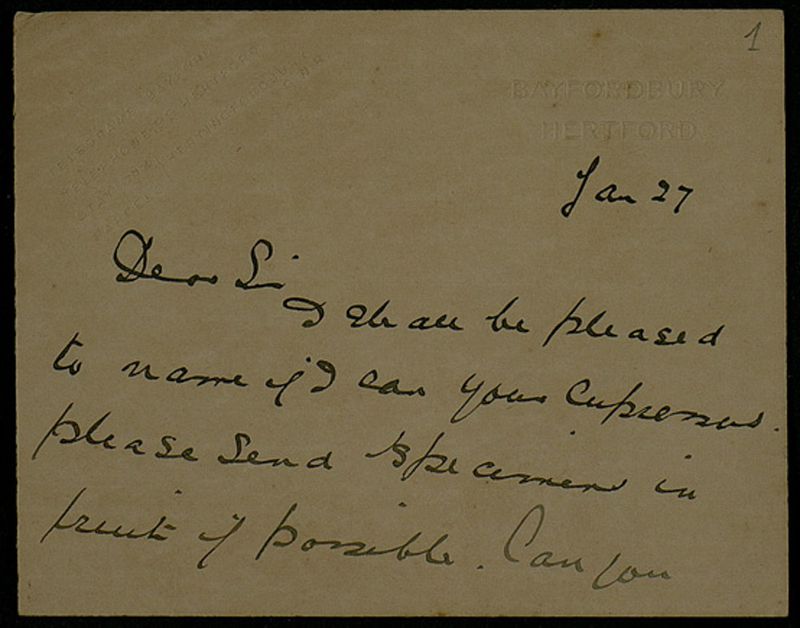 1
TELEGRAMS,
TELEPHONE HERTFORD
STATION HERTFORD
BAYFORDBURY
HERTFORD
Jan 27
Dear Sir
I shall be pleased
to name if I can your Cupressus.
please send specimens in
fruit if possible. Can you